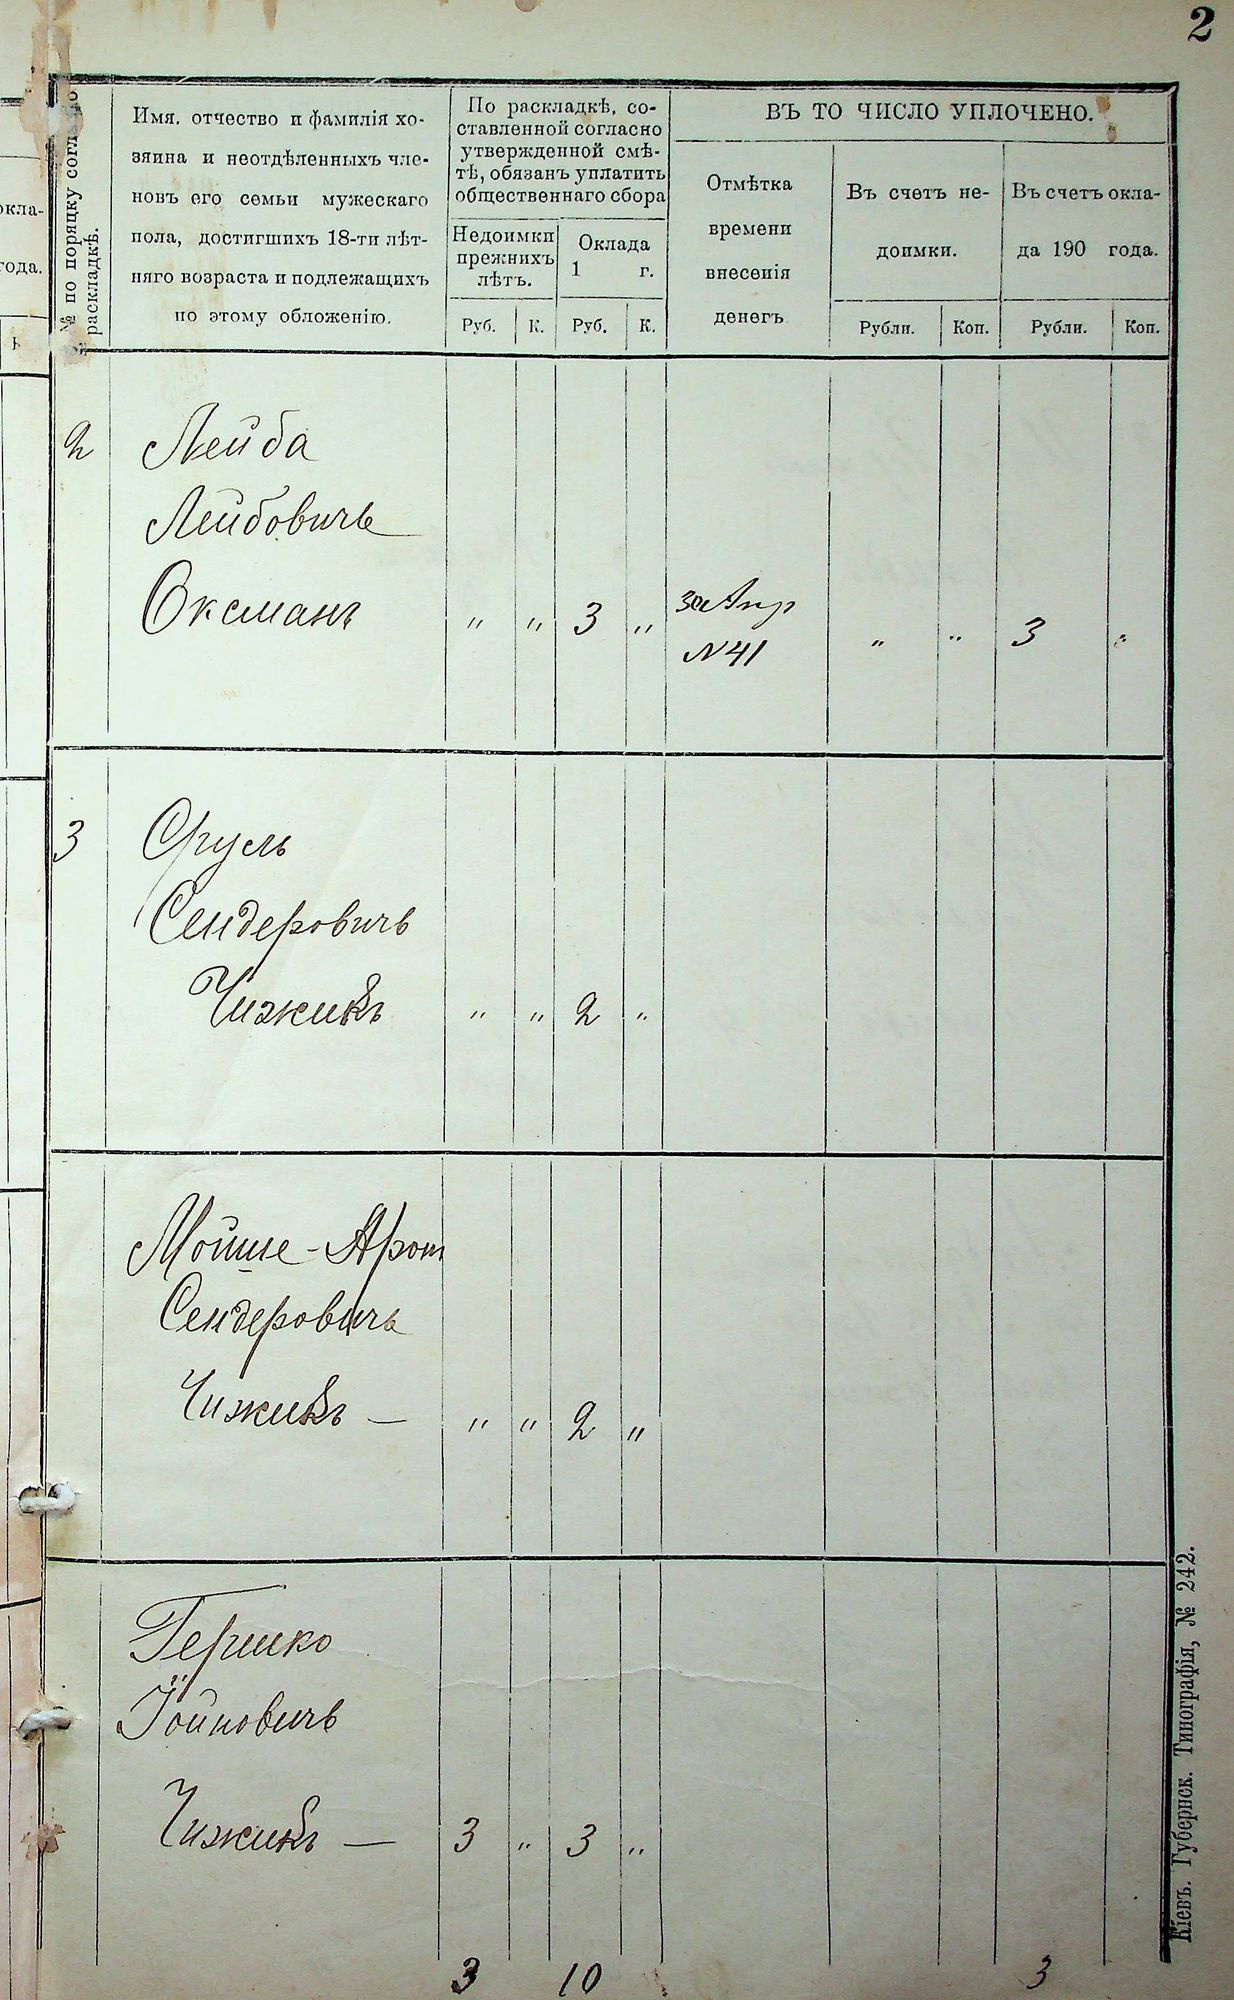 2
№ по порядку согласно раскладкѣ.
Имя, отчество и фамилія хо-
зяина и неотдѣленныхъ чле-
новъ его семьи мужескаго
пола, достигшихъ 18-ти лѣт-
няго возраста и подлежащихъ
по этому обложенію.
По раскладкѣ, со-
ставленной согласно
утвержденной смѣ-
тѣ, обязанъ уплатить
общественнаго сбора
Недоимки
прежнихъ
лѣтъ.
Оклада
1 г.
Руб. К. Руб. К.
ВЪ ТО ЧИСЛО УПЛОЧЕНО.
Отмѣтка
времени
внесенія
денегъ
Въ счетъ не-
доимки.
Въ счетъ окла-
да 190 года.
Рубли. Коп. Рубли. Коп.
окла-
года.
К
2 Лейба
Лейбовичъ
Оксманъ " " 3 " " " 3 "
№ 41
3 Сруль
Сендеровичъ
Чижикъ " " 2 "
Мойше-Арон
Сендеровичъ
Чижикъ — " " 2 "
Гершко
Іойновичъ
Чижикъ — 3 " 3 "
3 10 3
Кіевъ. Губернск. Типографія, № 242.